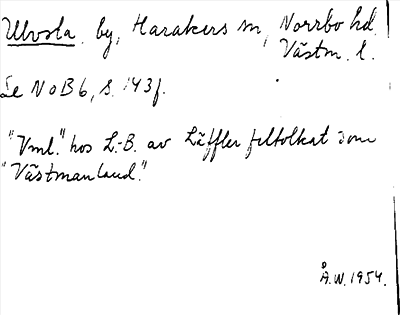 Ulvsta by, Harakers sn, Norrbo hd,
Västm. l.
Se NoB 6, s. 143 f.
"Vml." hos L.-B. av Läffler feltolkat som
"Västmanland."
Å.W. 1954.